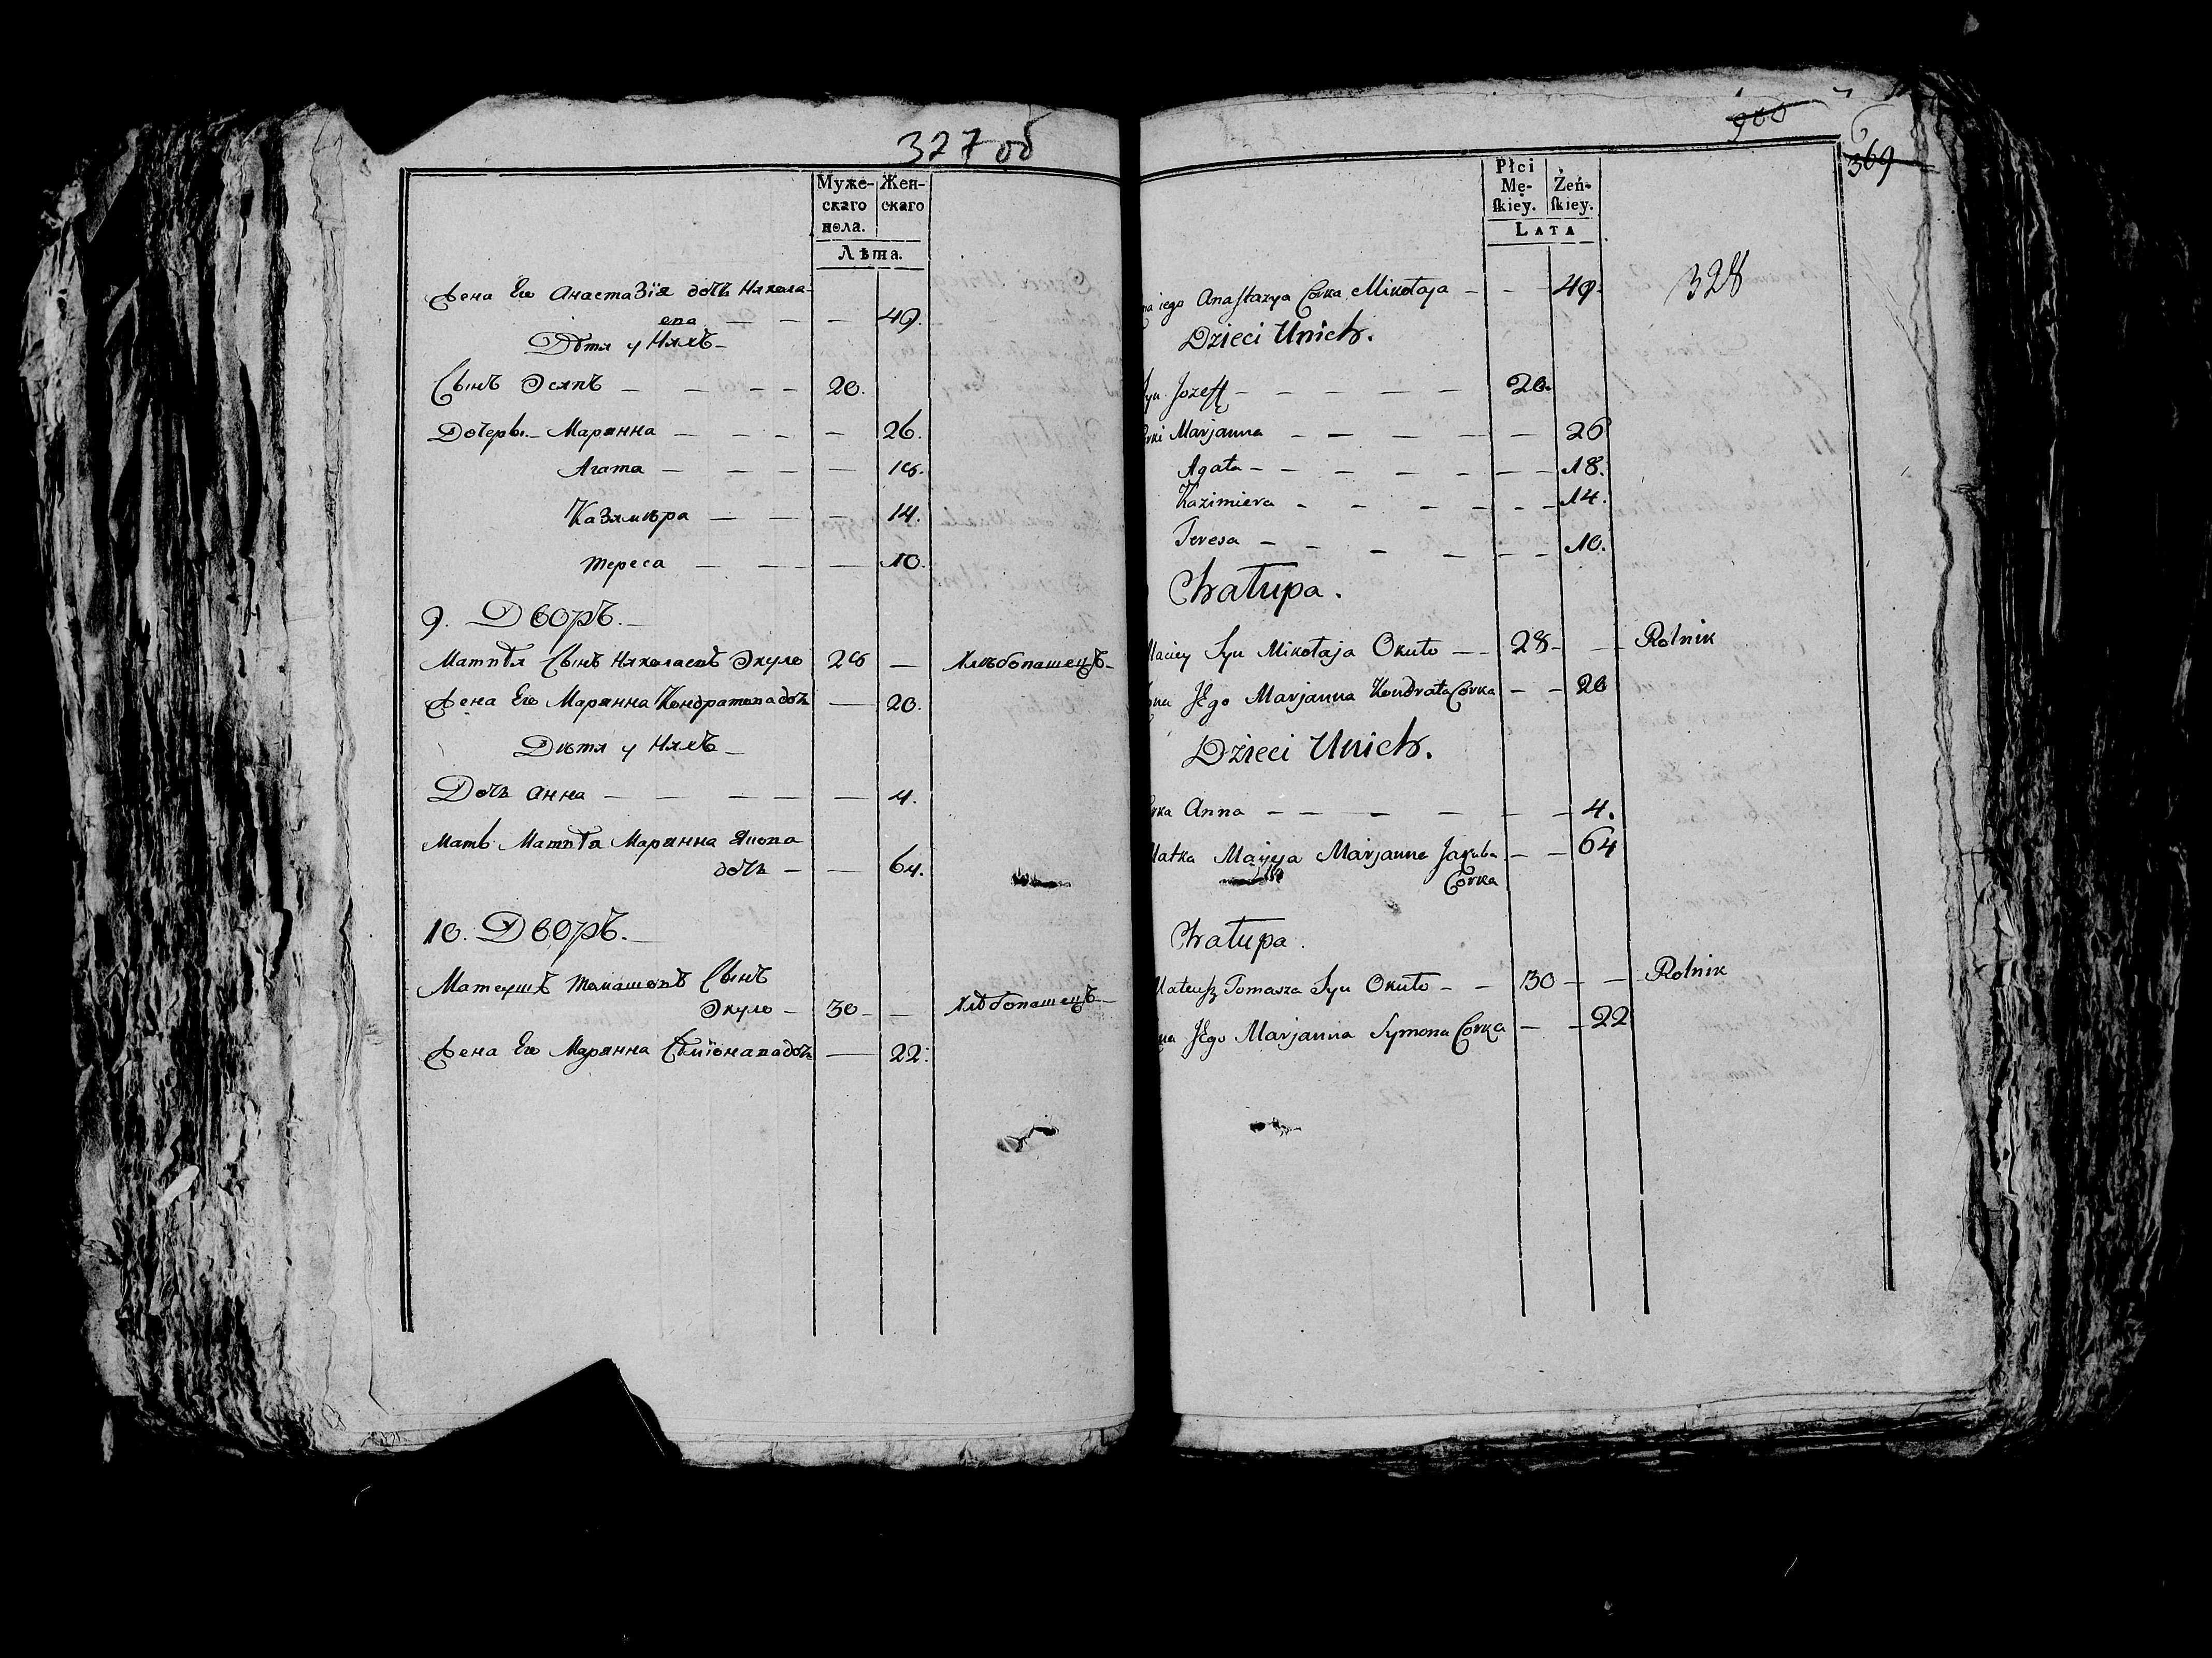 327 об
Муже- Жен-
скаго скаго
пола.
Лѣта.
Жена Его Анастазія дочь Никола-
ева — — — 49.
Дѣти у Нихъ —
Сынъ Эсипъ — — — — 20.
Дочеры — Марянна — — — — — 26.
Агата — — — — — 18.
Казимѣра — — — — 14.
Тереса — — — — 10.
9. Дворъ. —
Матвѣй Сынъ Николаевъ Окуло 28 — Хлѣбопашецъ —
Жена Его Марянна Кондратова дочь — 20.
Дѣти у Нихъ —
Дочь Анна — — — — — 4.
Мать Матвѣя Марянна
дочь — — 64.
10. Дворъ. —
Матеушъ Томашовъ Сынъ
Окуло — 30 — — Хлѣбопашецъ —
Жена Его Марянна дочь — 22.
900
369
Płci
Mę- Żeń-
ſkiey. ſkiey.
LATA
328
na iego Anaſtazya Corka Mikołaja — — — 49.
Dzieci Unich.
Syn Jozeff — — — — — 20.
Corki Marjanna — — — — — — 26
Agata — — — — — — — 18.
Kazimiera — — — — — — 14.
Teresa — — — — — — 10.
Chałupa.
Maciey Syn Mikołaja Okuło — — 28 — — Rolnik
Żona Jego Marjanna Kondrata Corka — — 20
Dzieci Unich.
Corka Anna — — — — — — 4.
Matka Macieja Marjanna Jakuba — — 64
Corka
Chałupa.
Mateuſz Tomasza Syn Okuło — — 30 — — Rolnik
na Jego Marjanna Symona Corka — — 22